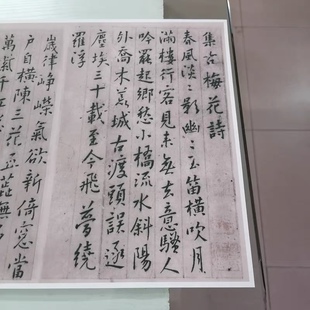 集古梅花詩
春風淡〻影幽〻玉笛橫吹月
滿樓行客見來無去意騷人
吟罷起鄉愁小橋流水斜陽
外喬木荒城古渡頭誤逐
塵埃三十載至今飛夢繞
羅浮
歲津崢嶸氣欲新倚窓當
戶自橫陳三花五蕊無
萬紫千紅